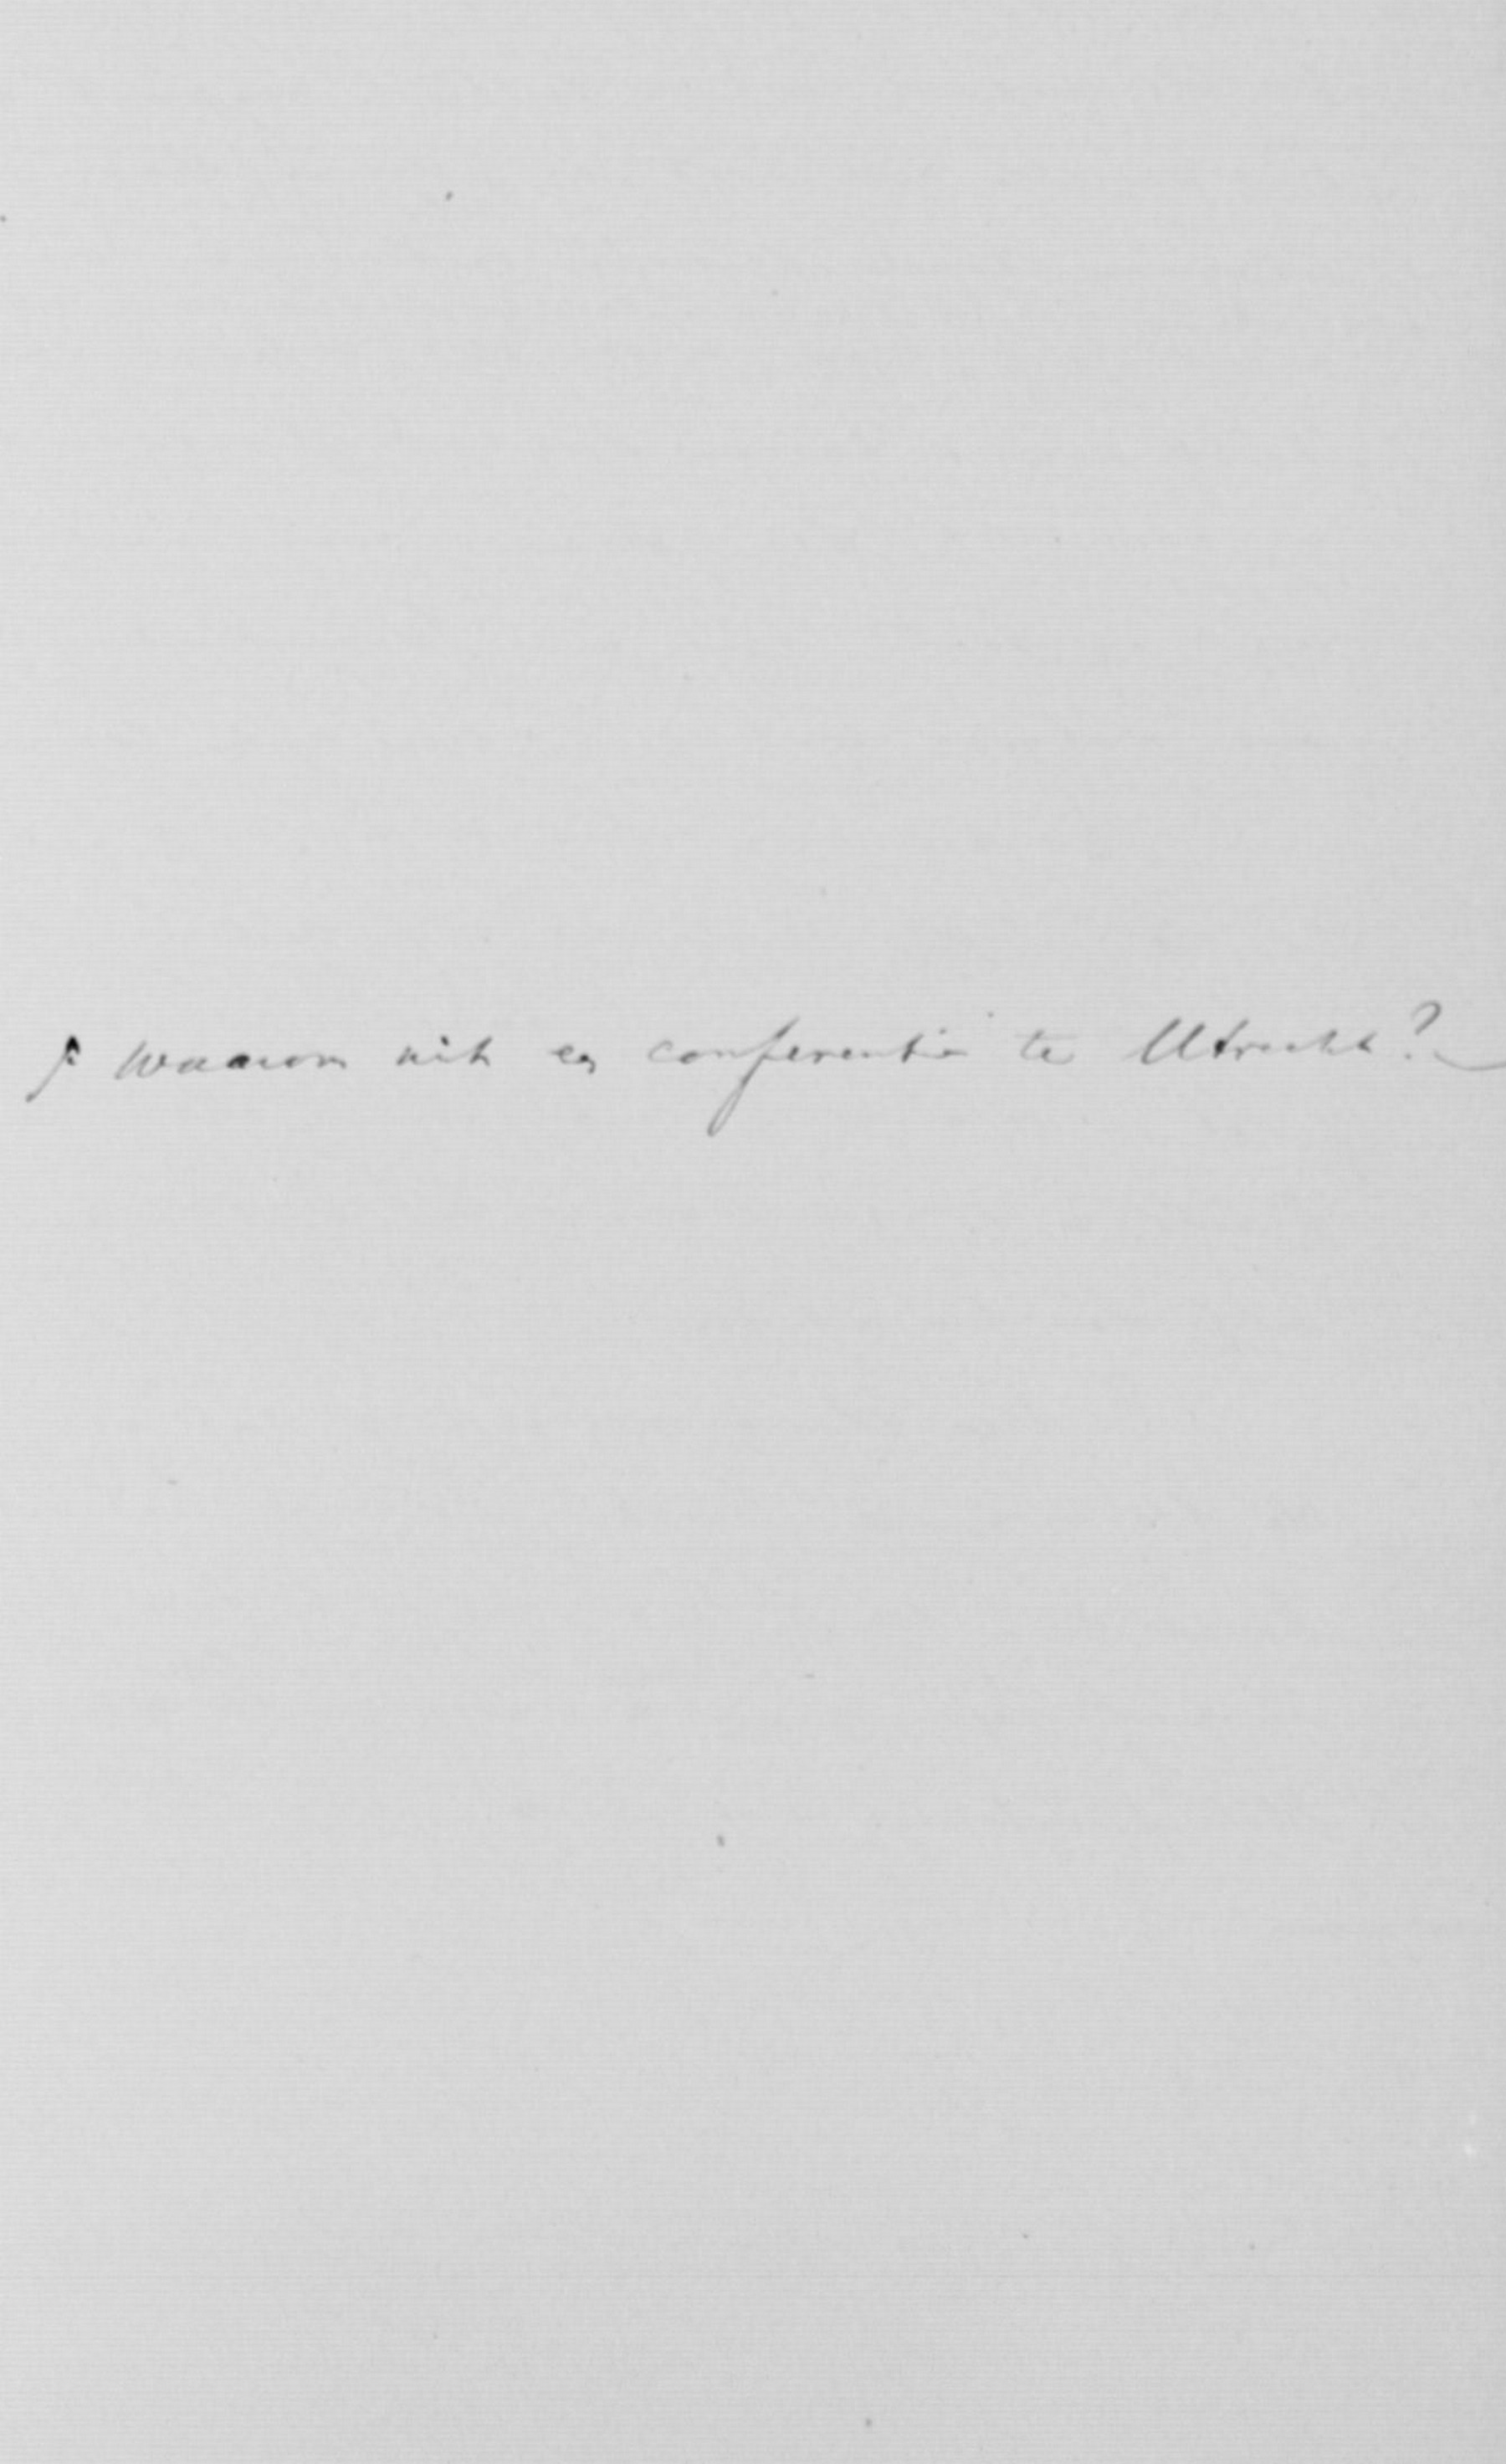 Waarom niet een conferentie te Utrecht?